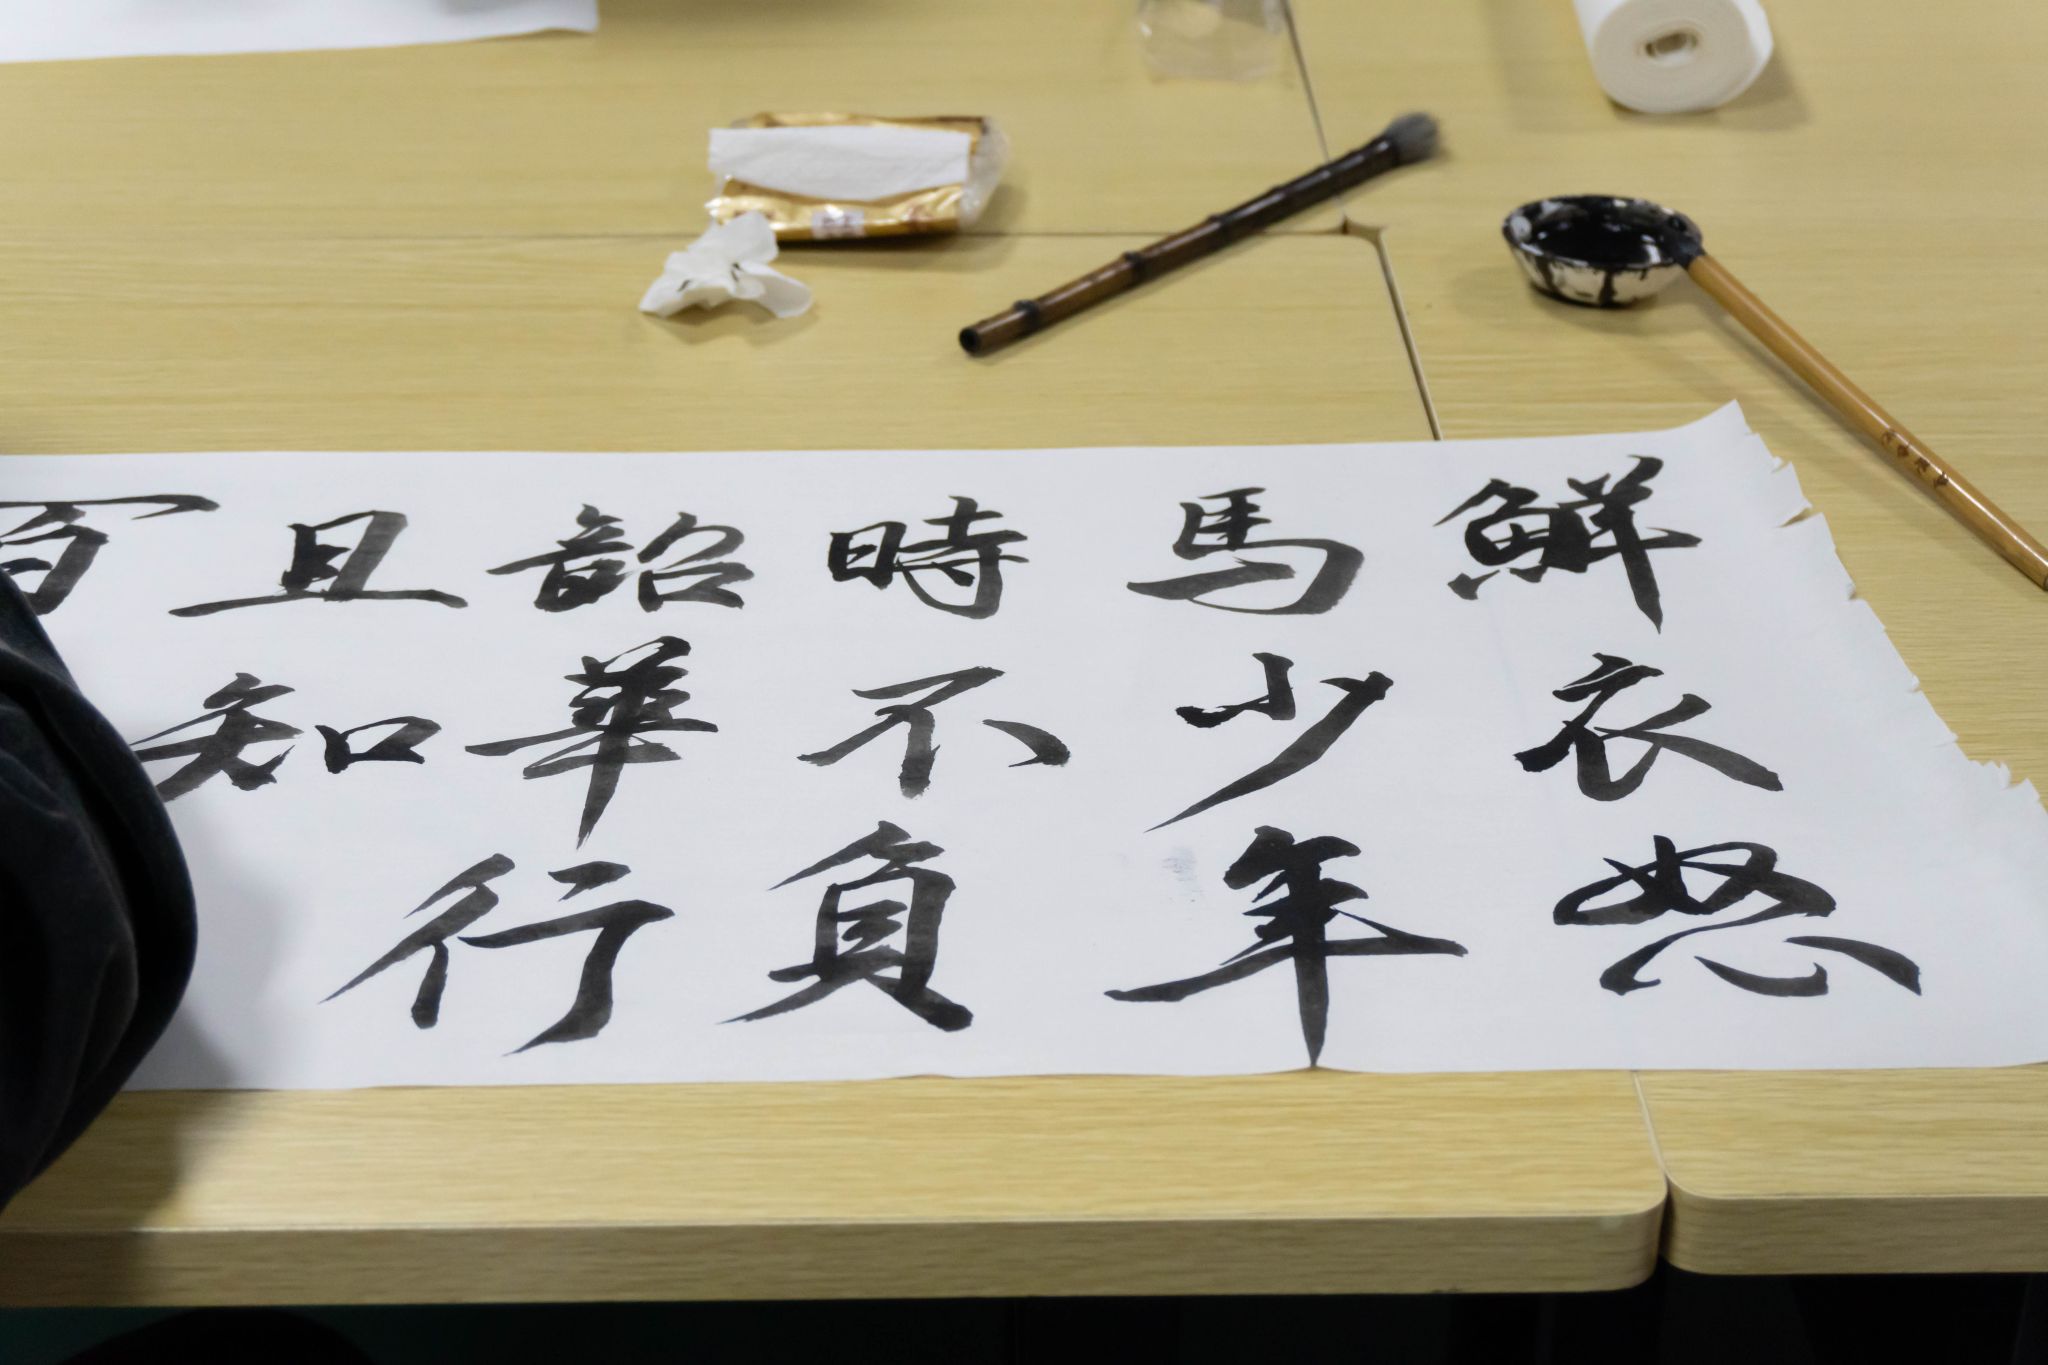 鮮衣怒
馬少年
時不負
韶華行
且知
百